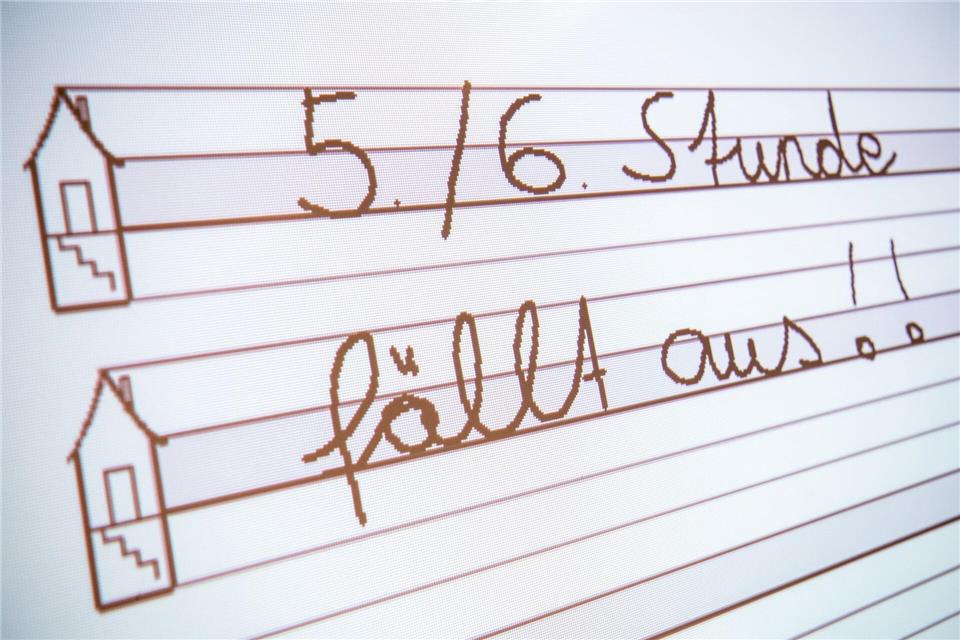 5./6. Stunde
fällt aus!!